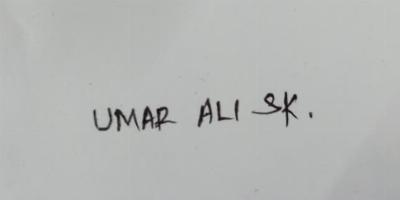 UMAR ALI SK.